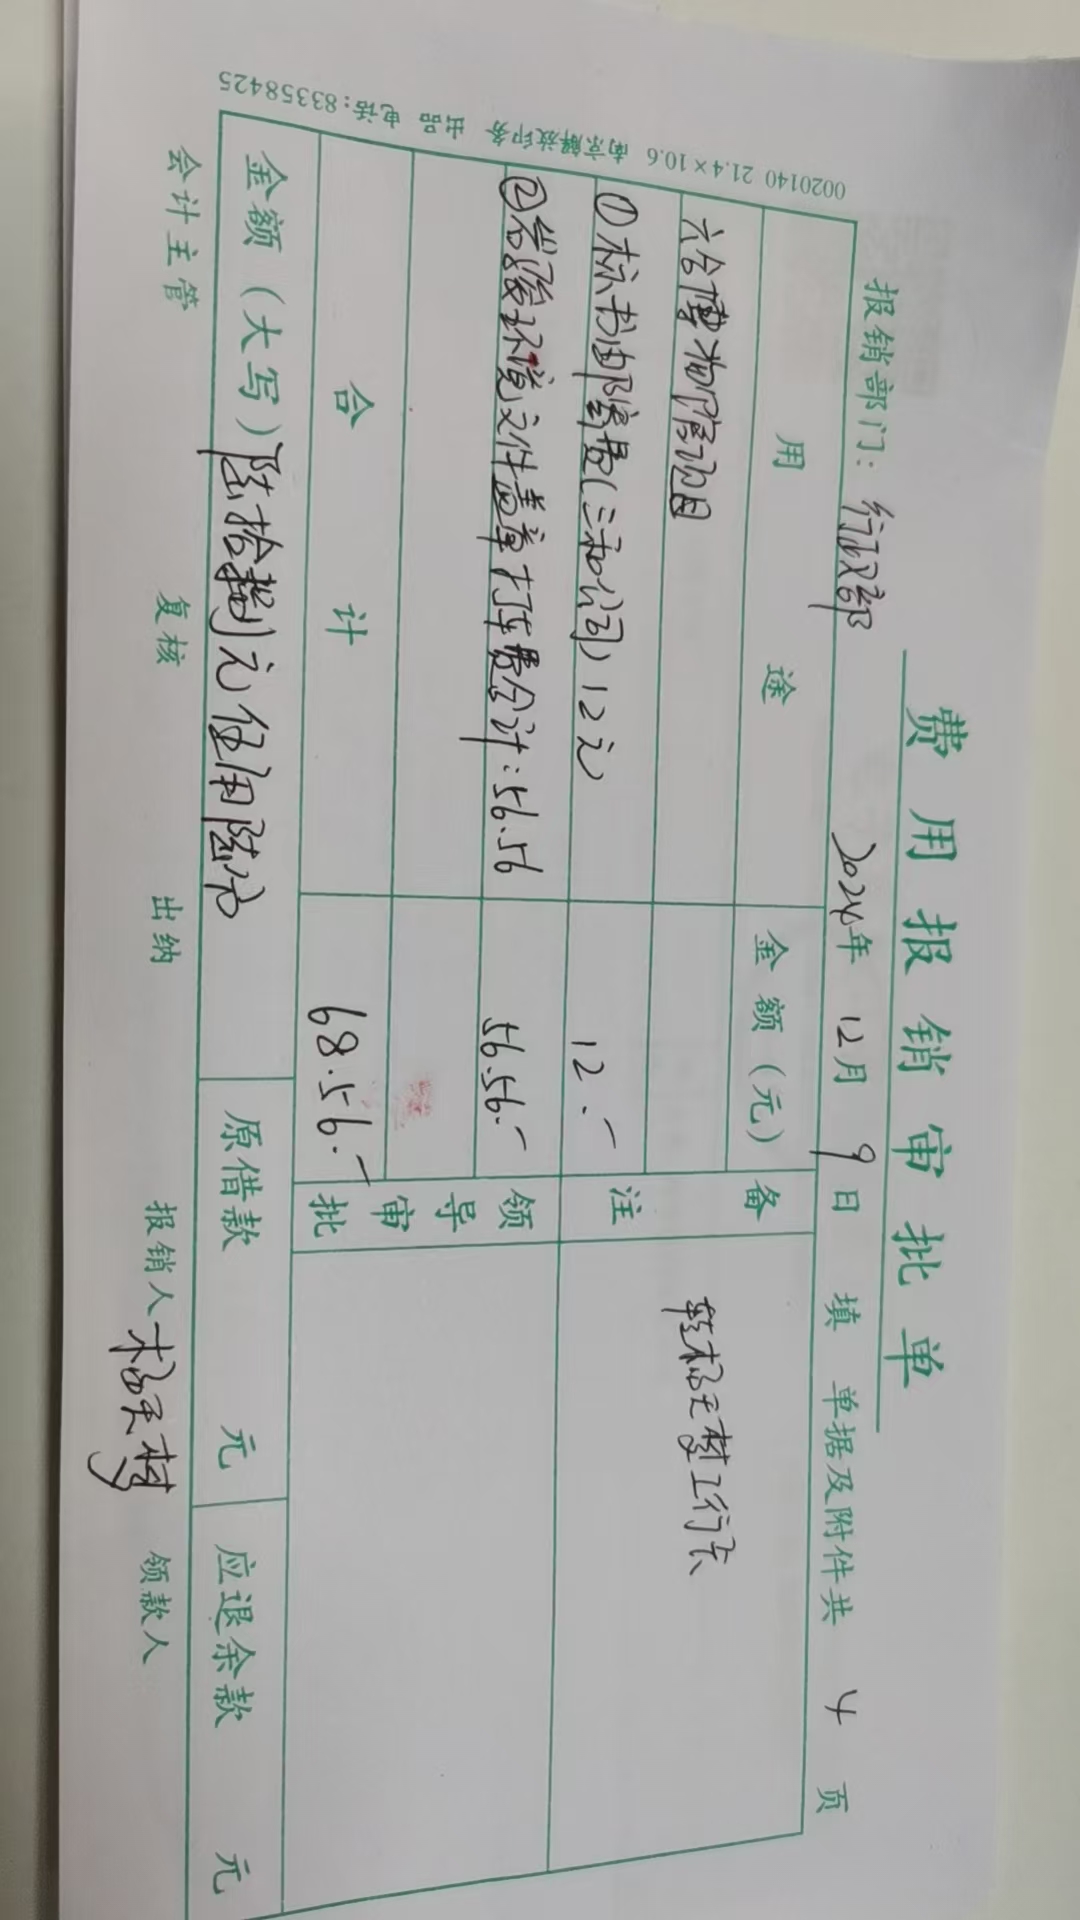 费用报销审批单
报销部门：行政部 2024年 12月 9日 填 单据及附件共 4 页
用途 金额（元） 备注
六合博物馆项目
①标书邮寄费（三和公司）12元 12.-
转杨天梦工行卡
②岩骏环境文件盖章打车费合计：56.56 56.56.-
领导审批
合计 68.56.-
金额（大写）陆拾捌元伍角陆分 原借款 元 应退余款 元
会计主管 复核 出纳 报销人 杨天梦 领款人
0020140 21.4×10.6 南京解放印务 出品 电话：83358425